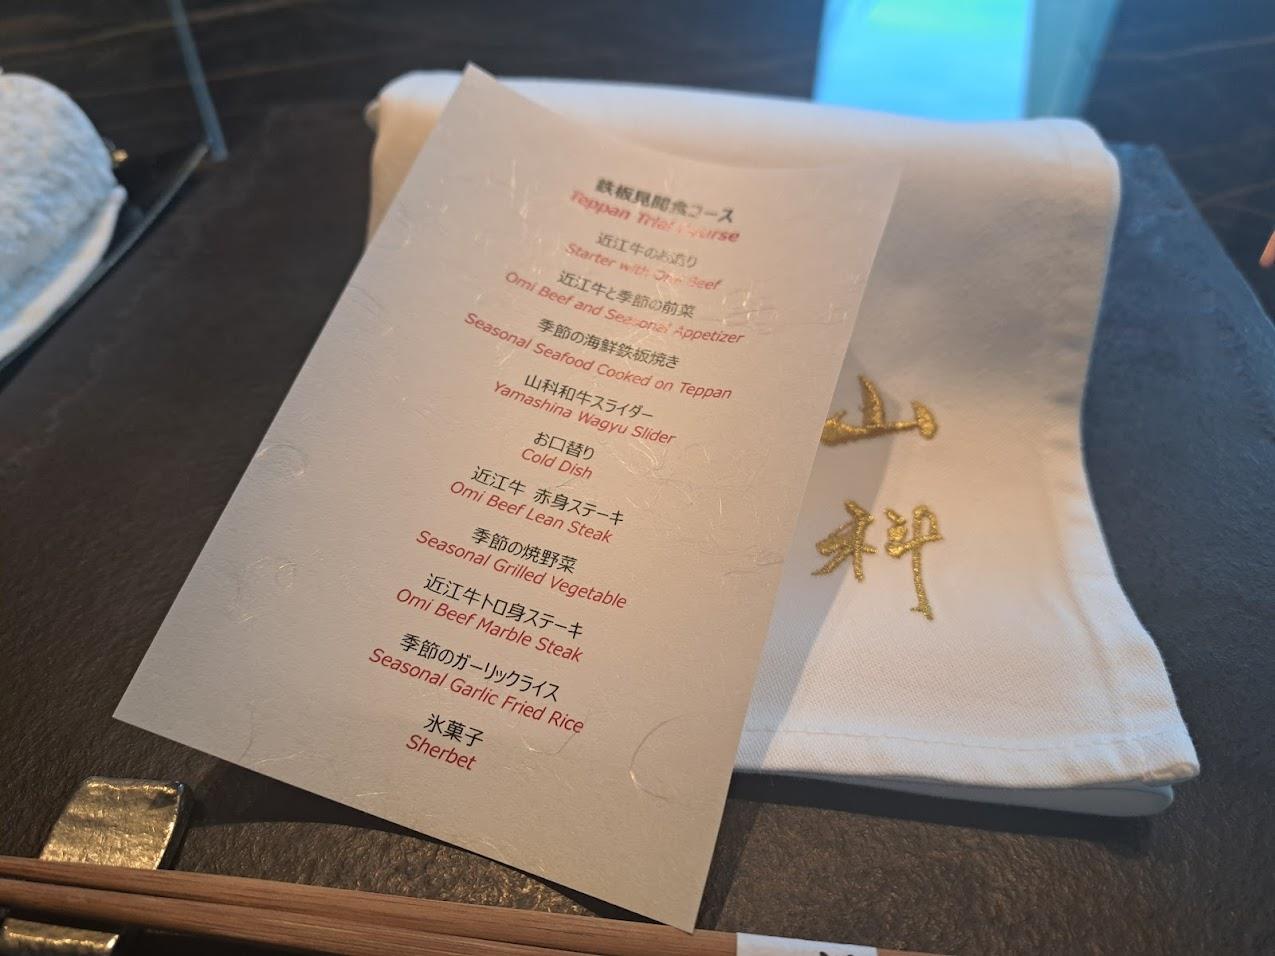 鉄板見聞食コース
Teppan Trial Course
近江牛のお造り
Starter with Omi Beef
近江牛と季節の前菜
Omi Beef and Seasonal Appetizer
季節の海鮮鉄板焼き
Seasonal Seafood Cooked on Teppan
山科和牛スライダー
Yamashina Wagyu Slider
お口替り
Cold Dish
近江牛 赤身ステーキ
Omi Beef Lean Steak
季節の焼野菜
Seasonal Grilled Vegetable
近江牛トロ身ステーキ
Omi Beef Marble Steak
季節のガーリックライス
Seasonal Garlic Fried Rice
氷菓子
Sherbet
山科